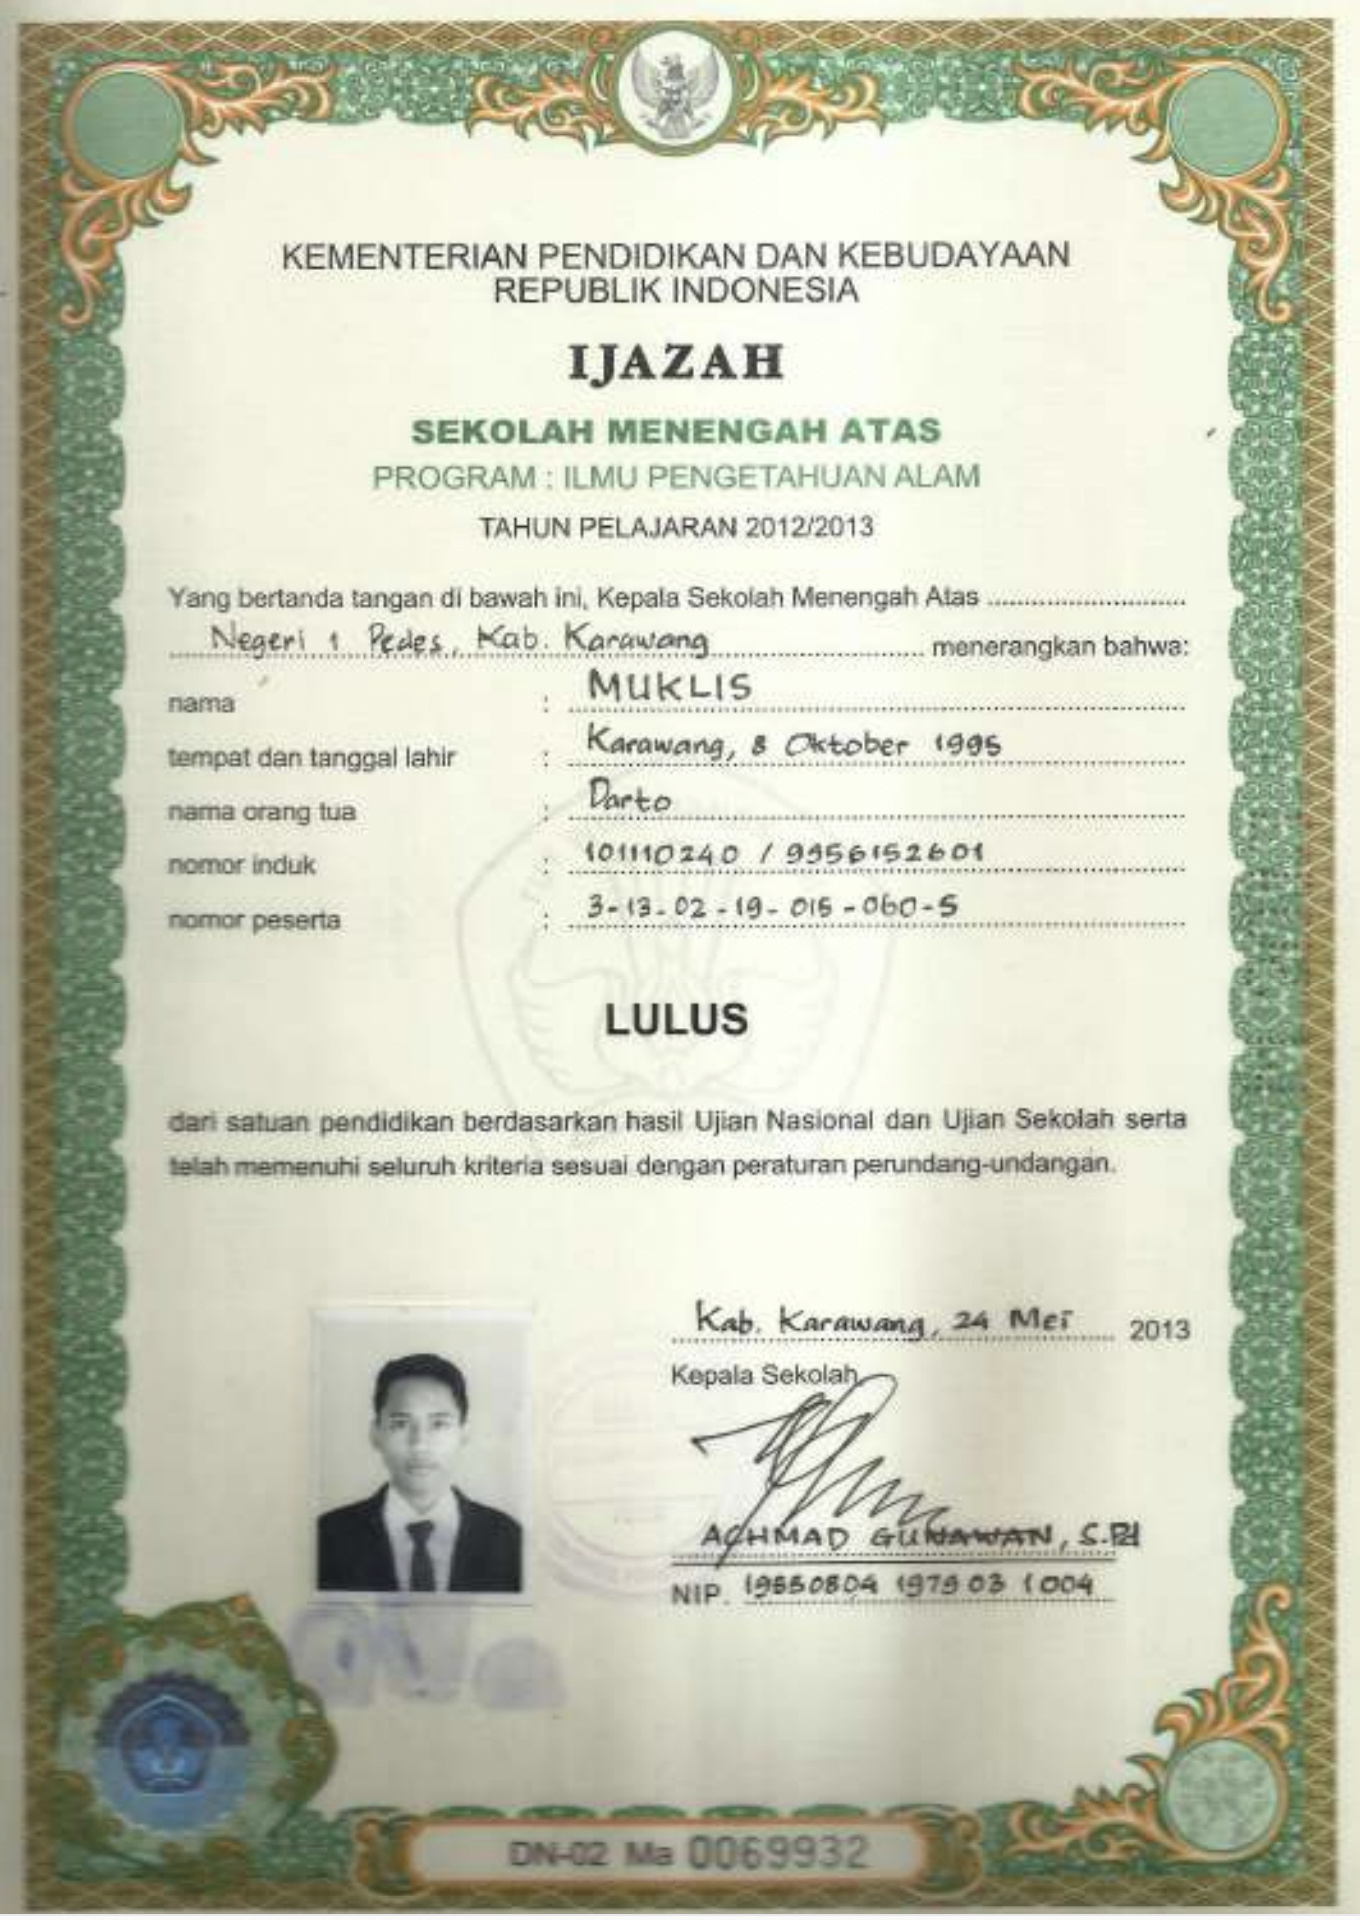 KEMENTERIAN PENDIDIKAN DAN KEBUDAYAAN
REPUBLIK INDONESIA
IJAZAH
SEKOLAH MENENGAH ATAS
PROGRAM : ILMU PENGETAHUAN ALAM
TAHUN PELAJARAN 2012/2013
Yang bertanda tangan di bawah ini, Kepala Sekolah Menengah Atas
Negeri 1 Pedes, Kab. Karawang menerangkan bahwa:
nama : MUKLIS
tempat dan tanggal lahir : Karawang, 8 Oktober 1995
nama orang tua : Darto
nomor induk : 101110240 / 9956152601
nomor peserta : 3-13-02-19-015-060-5
LULUS
dari satuan pendidikan berdasarkan hasil Ujian Nasional dan Ujian Sekolah serta
telah memenuhi seluruh kriteria sesuai dengan peraturan perundang-undangan.
Kab. Karawang, 24 Mei 2013
Kepala Sekolah
ACHMAD GUNAWAN, S.Pd
NIP. 19550804 197903 1 004
DN-02 Ma 0069932